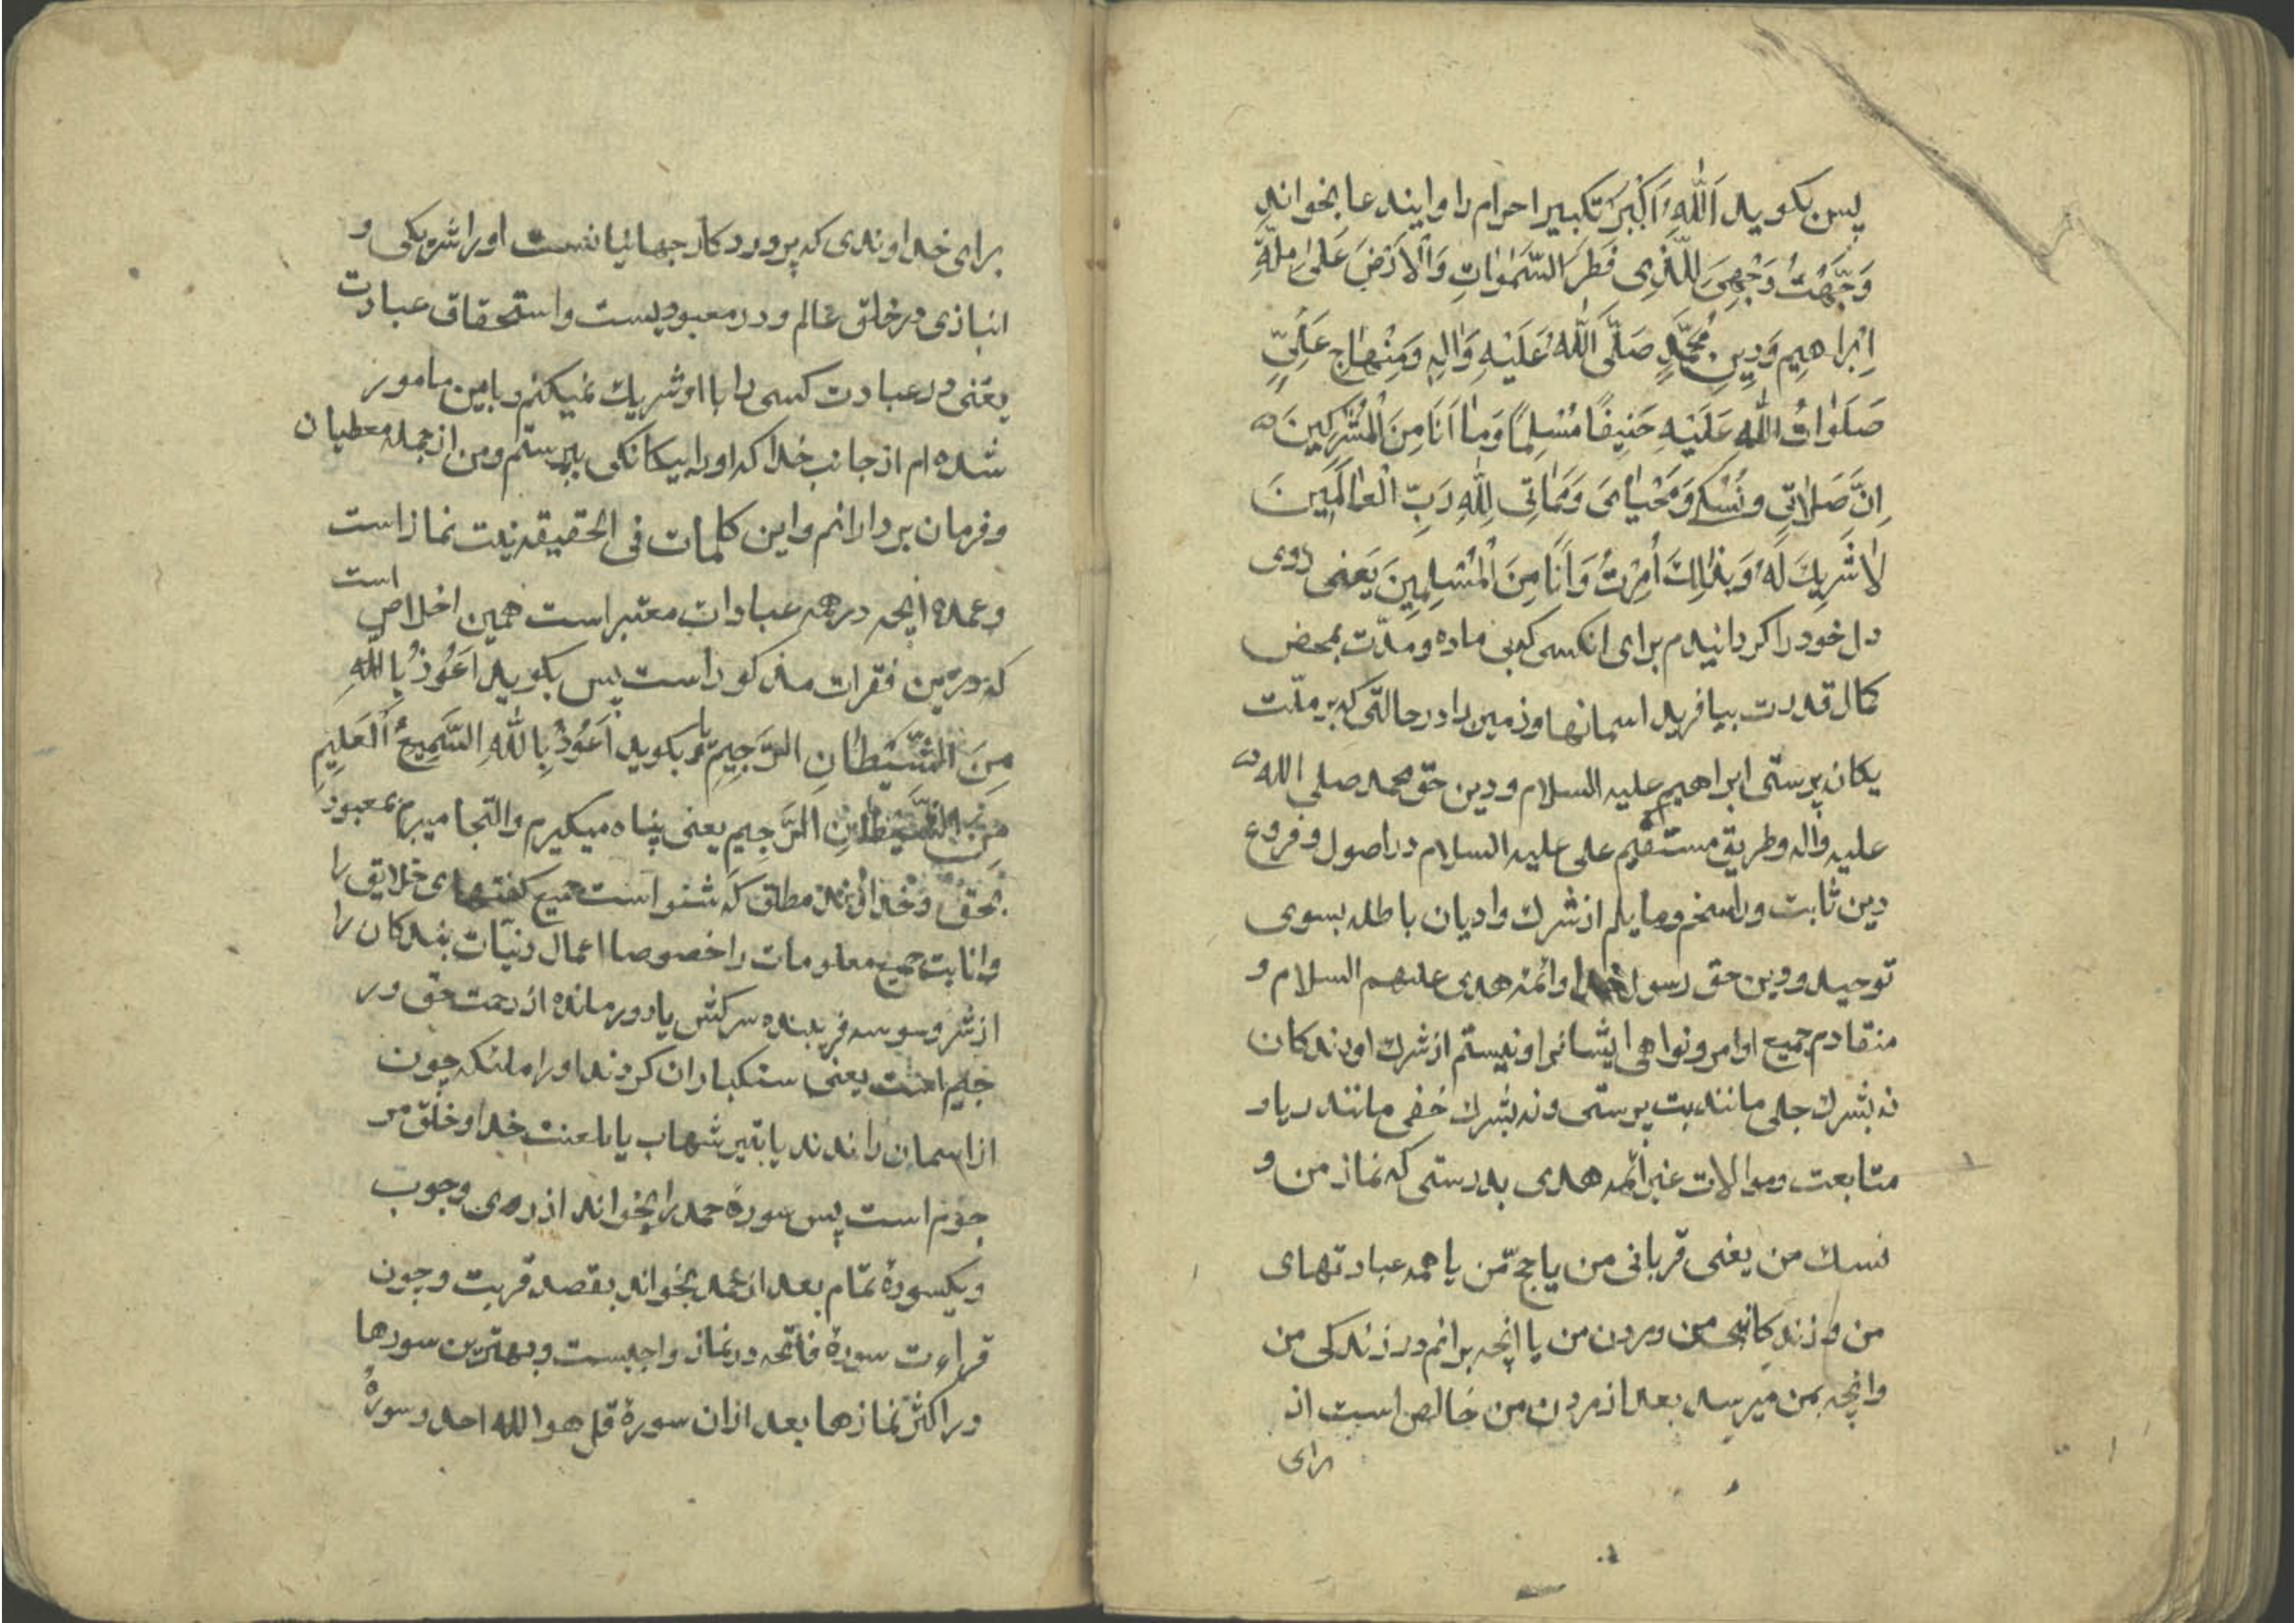 پس بکوید اَللّٰهُ اَکْبَرُ تکبیر احرام را و ایند عا بخواند
وَجَّهْتُ وَجْهِیَ لِلَّذِی فَطَرَ السَّمٰوٰاتِ وَالْاَرْضَ عَلیٰ مِلَّةِ
اِبْراهِیمِ وَدِینِ مُحَمَّدٍ صَلَّی اللّٰهُ عَلَیْهِ وَاٰلِهِ وَمِنْهاجِ عَلِیٍّ
صَلَوٰاتُ اللّٰهِ عَلَیْهِ حَنِیفًا مُسْلِمًا وَمٰا اَنَا مِنَ الْمُشْرِکِینَ
اِنَّ صَلاٰتِی وَنُسُکِی وَمَحْیٰایَ وَمَمٰاتِی لِلّٰهِ رَبِّ الْعٰالَمِینَ
لاٰ شَرِیكَ لَهُ وَبِذٰلِكَ اُمِرْتُ وَاَنَا مِنَ الْمُسْلِمِینَ یَعنی روی
دل خود را کردانیدم برای انکسی که بی ماده و مدّت بمحض
کمال قدرت بیافرید اسمانها و زمین را در حالتی که بر ملّت
یکان پرستی ابراهیم علیه السلام و دین حق محمد صلی الله
علیه واله وطریق مستقیم علی علیه السلام در اصول و فروع
دین ثابت و راسخم و مایلم از شرك و ادیان باطله بسوی
توحید و دین حق رسول خدا و ائمه هدی علیهم السلام و
منقادم جمیع اوامر و نواهی ایشانرا و نیستم از شرك اورندکان
نه بشرك جلی مانند بت پرستی و نه بشرك خفی مانند ریا و
متابعت و موالات غیر ائمه هدی بدرستی که نماز من و
نسك من یعنی قربانی من یا حج من یا همه عبادتهای
من و زندکانی من و مردن من یا انچه برانم در زندکی من
وانچه بمن میرسد بعد از مردن من خالص است از
برای
برای خداوندی که پروردکار جهانیانست او را شریکی و
انبازی در خلق عالم و در معبودیست و استحقاق عبادت
یعنی در عبادت کسی را با او شریك نمیکنم و باین مامور
شده ام از جانب خدا که او را بیکانکی بپرستم و من از جمله مطیعان
و فرمان بردارانم و این کلمات فی الحقیقه نیت نماز است
و عمده انچه در همه عبادات معتبر است همین اخلاص است
که درین فقرات مذکور است پس بکوید اَعُوذُ بِاللّٰهِ
مِنَ الشَّیْطٰانِ الرَّجِیمِ یا بکوید اَعُوذُ بِاللّٰهِ السَّمِیعِ الْعَلِیمِ
مِنَ الشَّیْطٰانِ الرَّجِیمِ یعنی پناه میکیرم و التجا میبرم بمعبود
بحق و خداوند مطلق که شنواست جمیع کفتهای خلایق را
و دانا بت جمیع معلومات را خصوصا اعمال و نیّات بندکان را
از شر وسوسه فریبنده سرکش یا دور مانده از رحمت حق و ر
جیم است یعنی سنکباران کردند او را ملئکه چون
از اسمان راندند یا بتیر شهاب یا بلعنت خدا و خلق مر
جوم است پس سورۀ حمد را بخواند از روی وجوب
و یکسورۀ تمام بعد از حمد بخواند بقصد قربت و چون
قراءت سورۀ فاتحه در نماز واجبست و بهترین سورها
در اکثر نمازها بعد از ان سورۀ قل هو الله احد و سورۀ